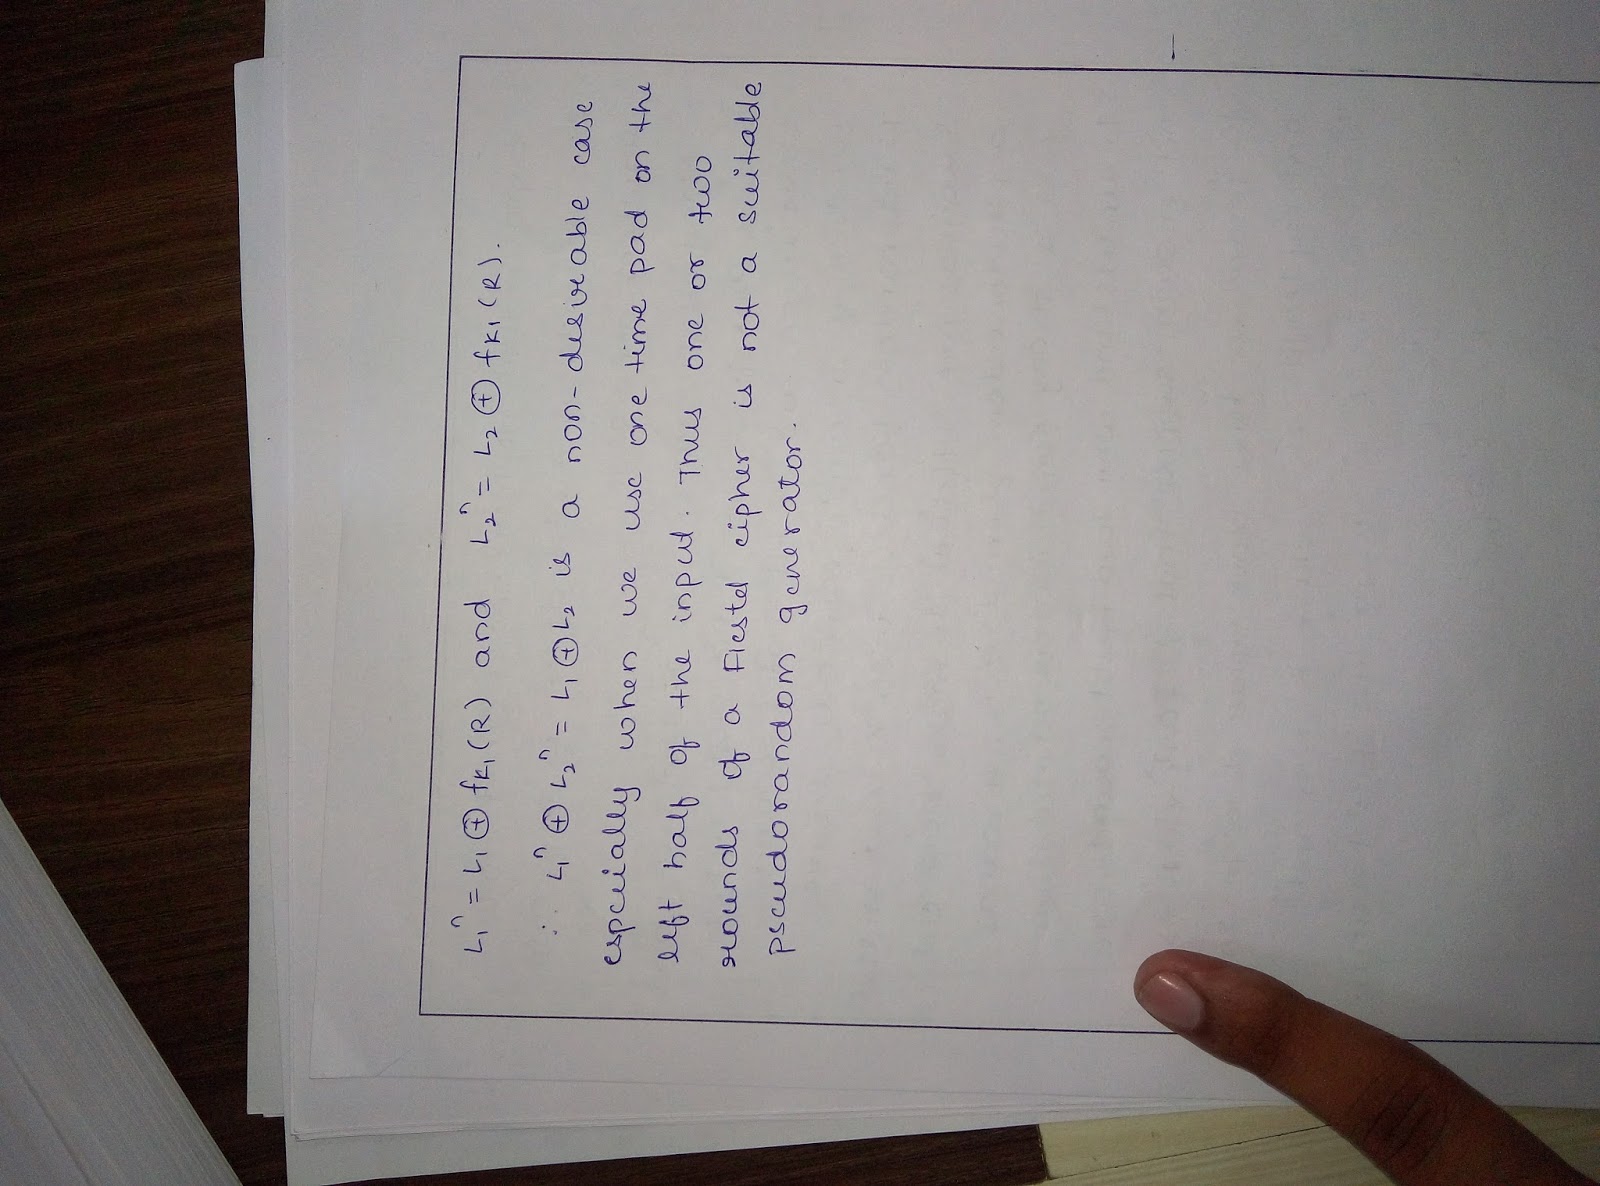 L₁^n = L₁ ⊕ fK₁(R) and L₂^n = L₂ ⊕ fK₁(R).
∴ L₁^n ⊕ L₂^n = L₁ ⊕ L₂ is a non-desireable case
especially when we use one time pad on the
left half of the input. Thus one or two
rounds of a Fiestel cipher is not a suitable
pseudorandom generator.